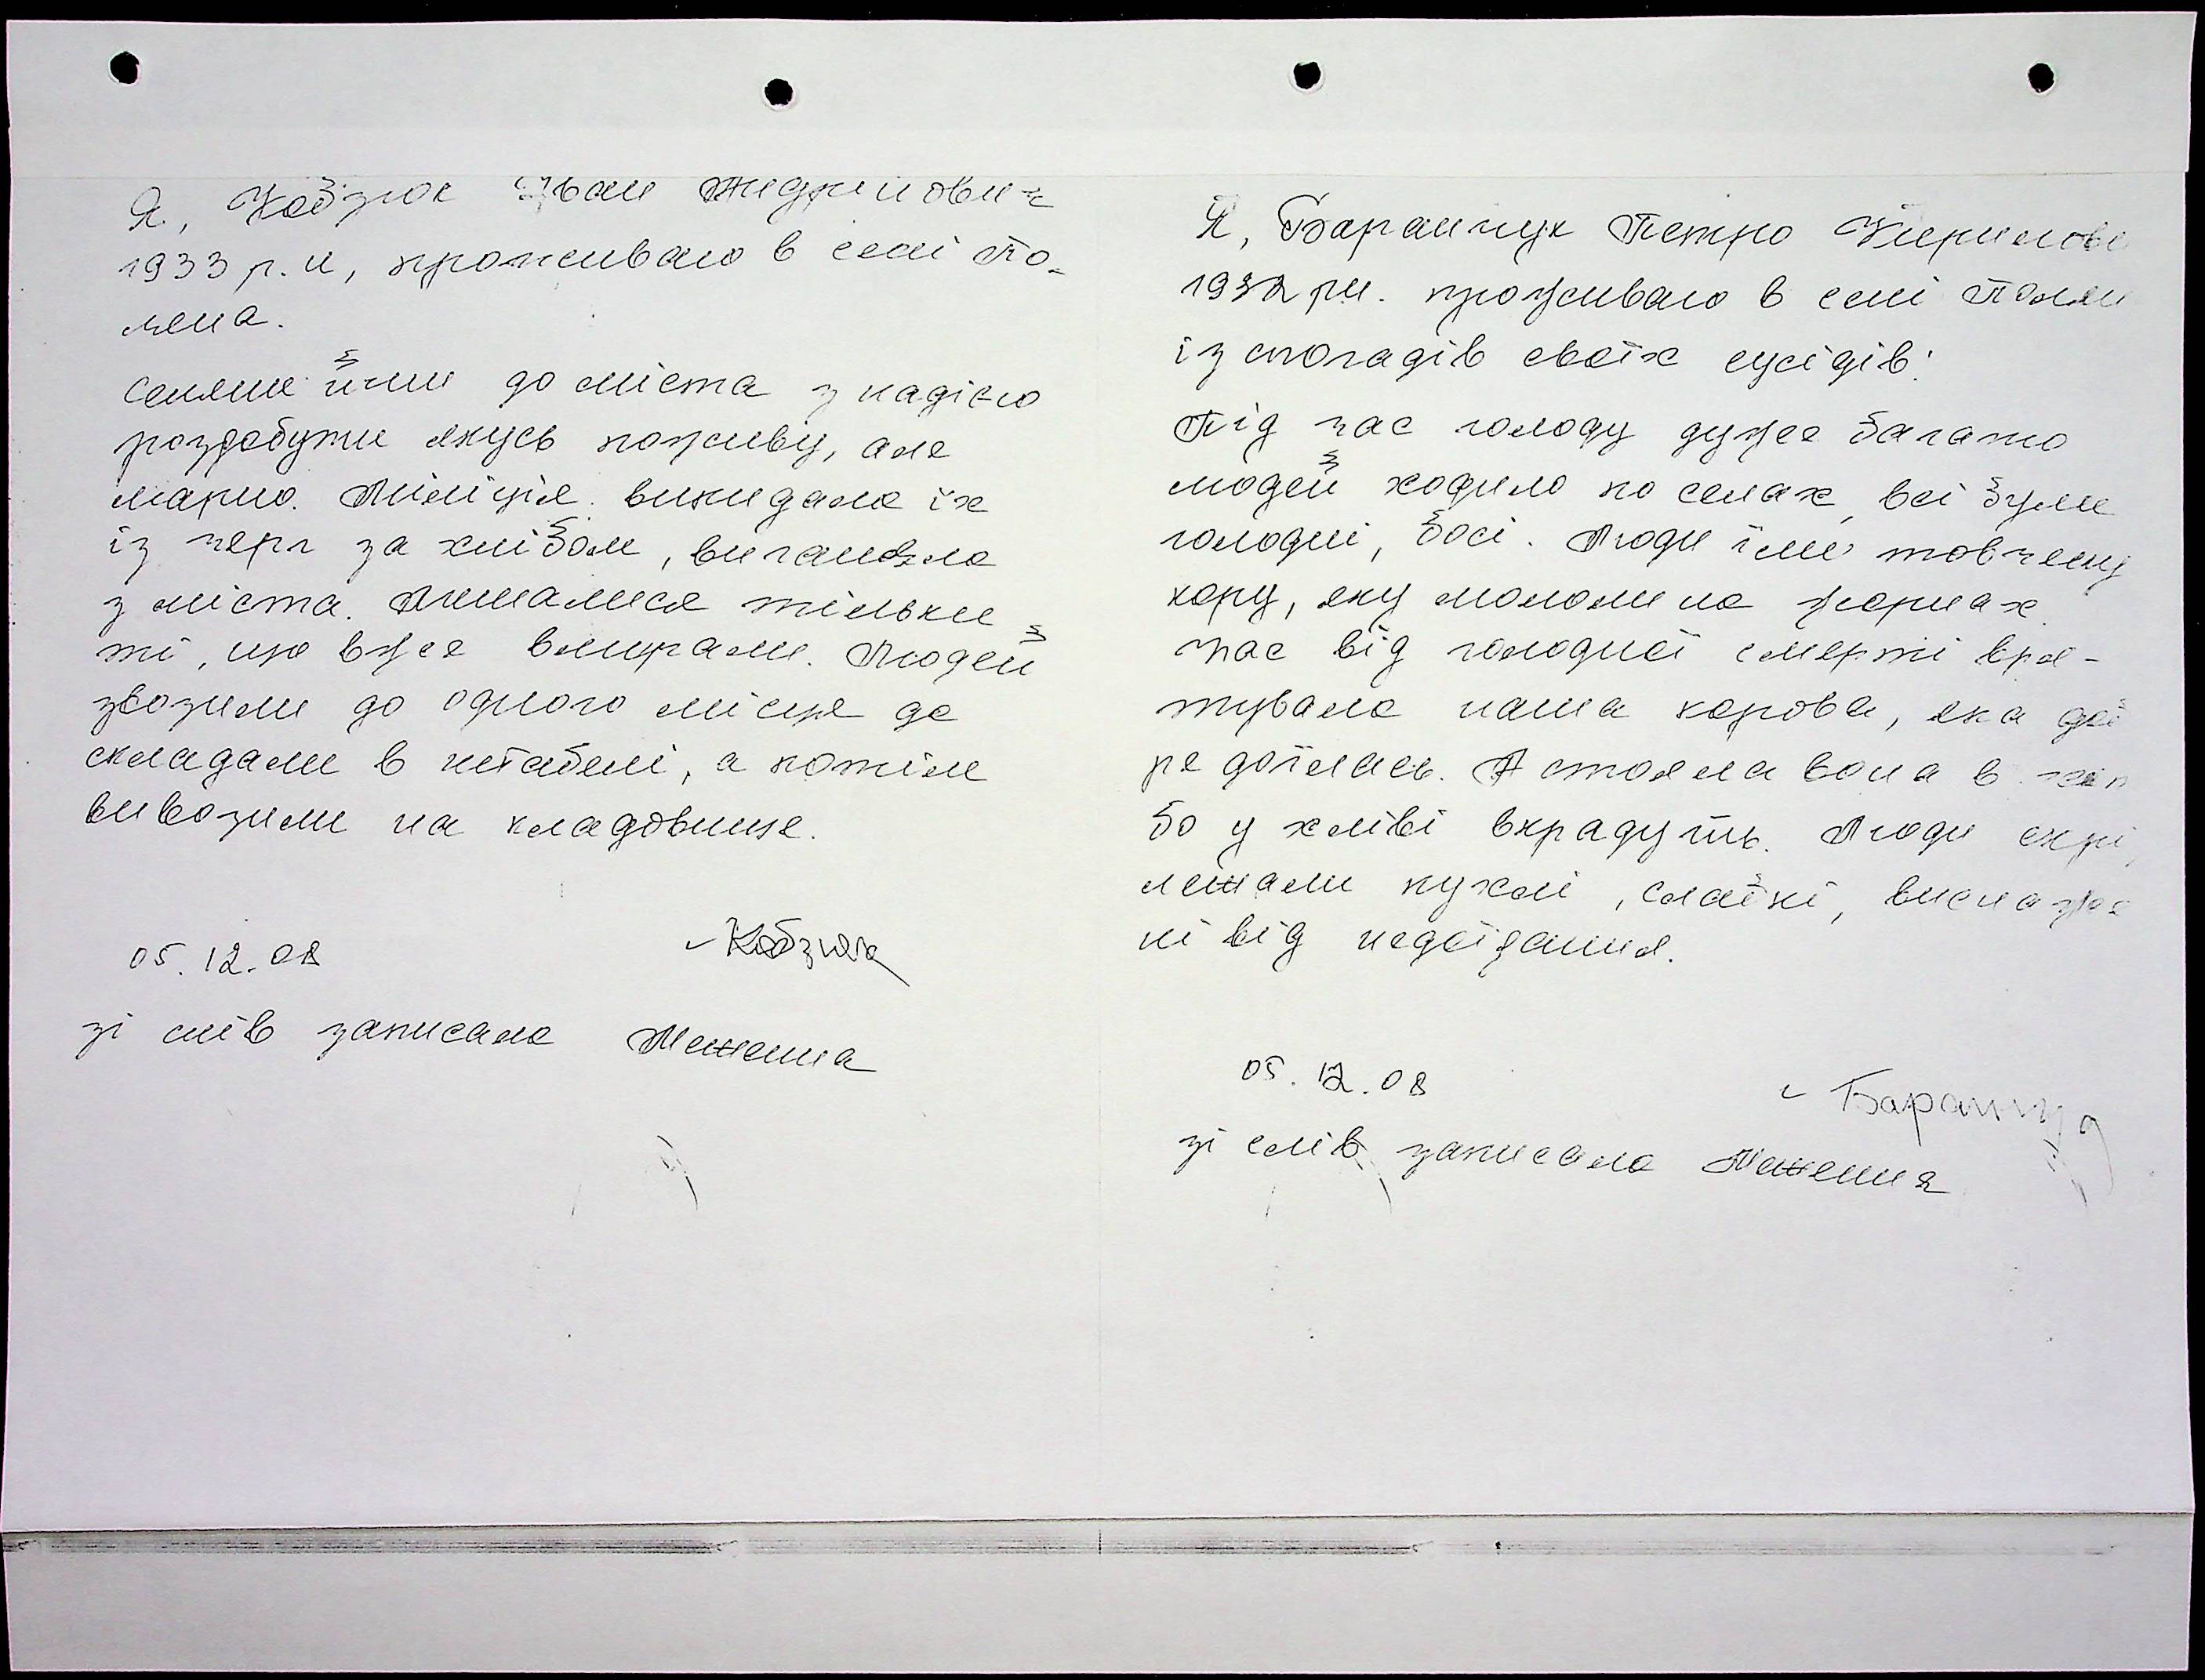 Я, Кобзюк Іван
1933 р.н, проживаю в селі По-
лена.
Селяни йшли до міста з надією
роздобути якусь поживу, але
марно. Міліція викидала їх
із черг за хлібом, виганяла
з міста. Лишалися тільки
ті, що вже вмирали. Людей
звозили до одного місця де
складали в штабелі, а потім
вивозили на кладовище.
05.12.08 Кобзюк
зі слів записала
Я, Баранчук Петро Кирилови
1932 р.н. проживаю в селі Полен
із спогадів своїх сусідів:
Під час голоду дуже багато
людей ходило по селах, всі були
голодні, босі. Люди їли товчену
кору, яку мололи на жорнах.
Нас від голодної смерті вря-
тувала наша корова, яка доб
ре доїлась. А стояла вона в
бо у хліві вкрадуть. Люди скрі
лежали пухлі, слабкі, виснаже
ні від недоїдання.
05.12.08 Баранчу
зі слів записала